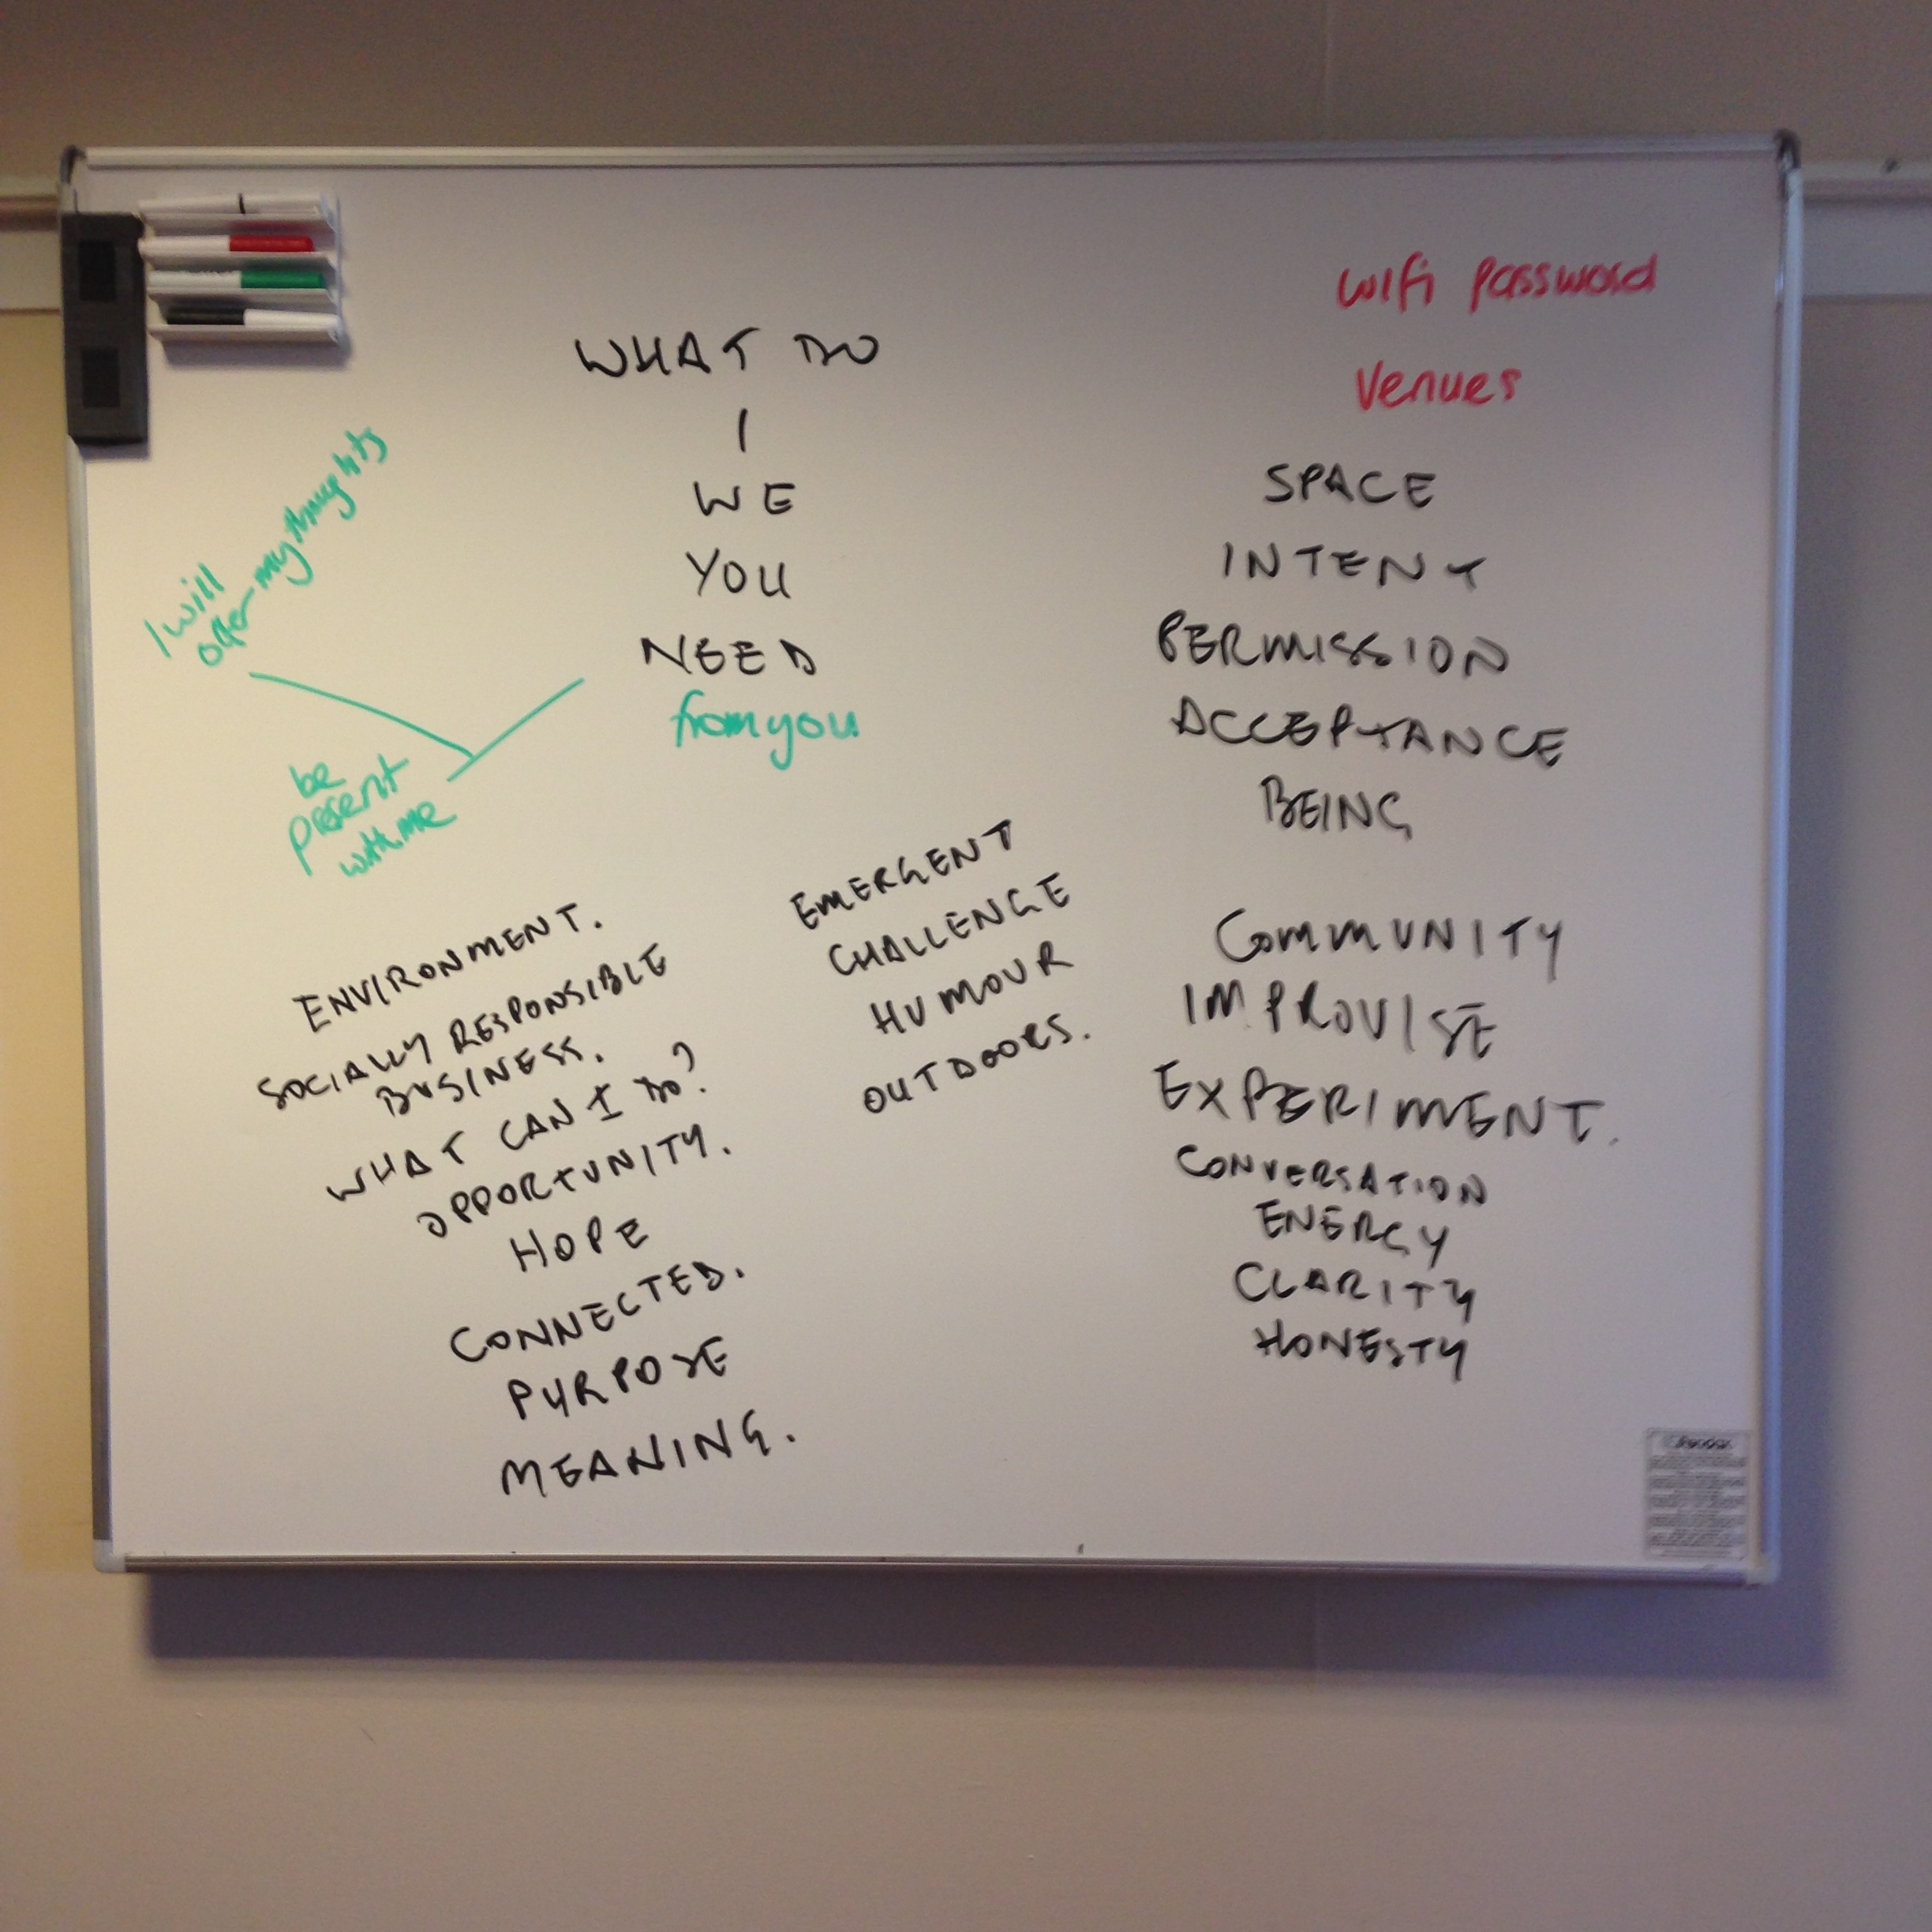 wifi password
Venues
WHAT DO
I
WE
YOU
NEED
from you
I will
offer my thoughts
be
present
with me
SPACE
INTENT
PERMISSION
ACCEPTANCE
BEING
COMMUNITY
IMPROVISE
EXPERIMENT.
CONVERSATION
ENERGY
CLARITY
HONESTY
EMERGENT
CHALLENGE
HUMOUR
OUTDOORS.
ENVIRONMENT.
SOCIALLY RESPONSIBLE
BUSINESS.
WHAT CAN I DO?
OPPORTUNITY.
HOPE
CONNECTED.
PURPOSE
MEANING.